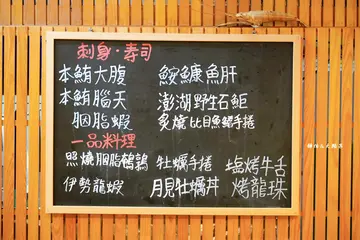 刺身·寿司
本鮪大腹 鮟鱇魚肝
本鮪腦天 澎湖野生石鮔
胭脂蝦 炙燒比目魚鰂手捲
一品料理
照燒胭脂鵪鶉 牡蠣手捲 塩烤牛舌
伊勢龍蝦 月見牡蠣丼 烤龍珠